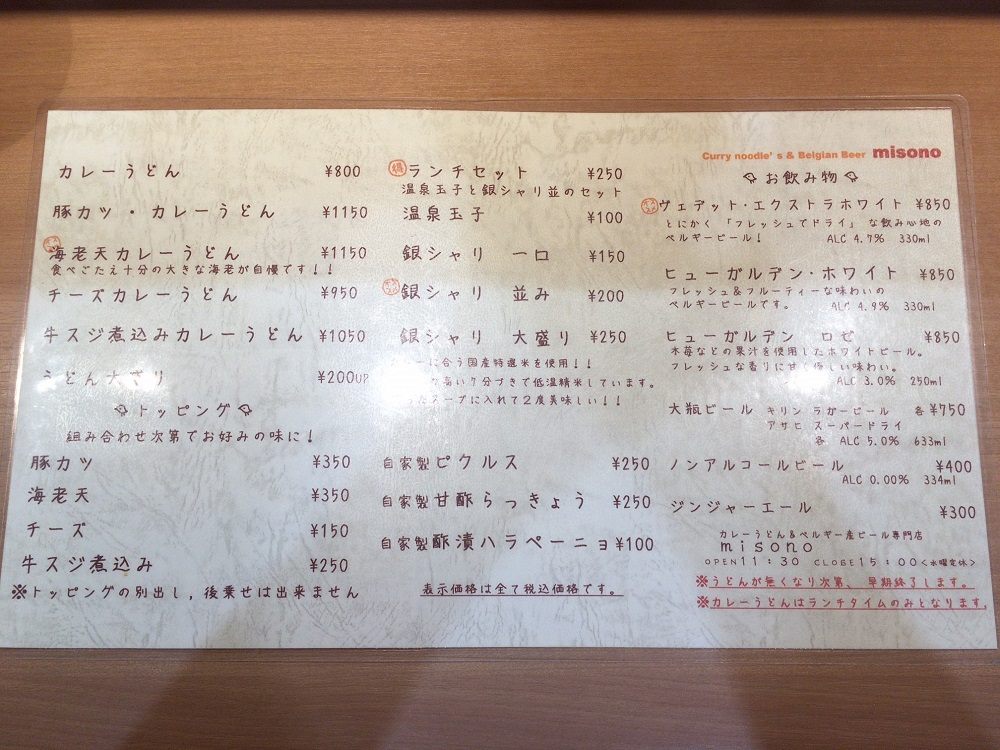 カレーうどん ¥800
豚カツ・カレーうどん ¥1150
海老天カレーうどん ¥1150
食べごたえ十分の大きな海老が自慢です!!
チーズカレーうどん ¥950
牛スジ煮込みカレーうどん ¥1050
うどん大盛り ¥200UP
トッピング
組み合わせ次第でお好みの味に!
豚カツ ¥350
海老天 ¥350
チーズ ¥150
牛スジ煮込み ¥250
※トッピングの別出し,後乗せは出来ません
得 ランチセット ¥250
温泉玉子と銀シャリ並のセット
温泉玉子 ¥100
銀シャリ 一口 ¥150
銀シャリ 並み ¥200
銀シャリ 大盛り ¥250
に合う国産特選米を使用!!
高い7分づきで低温精米しています。
たスープに入れて2度美味しい!!
自家製ピクルス ¥250
自家製甘酢らっきょう ¥250
自家製酢漬ハラペーニョ ¥100
表示価格は全て税込価格です。
Curry noodle's & Belgian Beer misono
お飲み物
ヴェデット・エクストラホワイト ¥850
とにかく「フレッシュでドライ」な飲み心地の
ベルギービール! ALC 4.7% 330ml
ヒューガルデン・ホワイト ¥850
フレッシュ&フルーティーな味わいの
ベルギービールです。 ALC 4.9% 330ml
ヒューガルデン ロゼ ¥850
木苺などの果汁を使用したホワイトビール。
フレッシュな香りに甘く優しい味わい。
ALC 3.0% 250ml
大瓶ビール キリン ラガービール 各¥750
アサヒ スーパードライ
各 ALC 5.0% 633ml
ノンアルコールビール ¥400
ALC 0.00% 334ml
ジンジャーエール ¥300
カレーうどん&ベルギー産ビール専門店
misono
OPEN11:30 CLOSE15:00<水曜定休>
※うどんが無くなり次第、早期終了します。
※カレーうどんはランチタイムのみとなります。